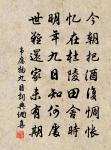 今朝把酒復惆悵
憶在杜陵田舍時
明年九日知何處
世難還家未有期
韋應物九日詩興網喜